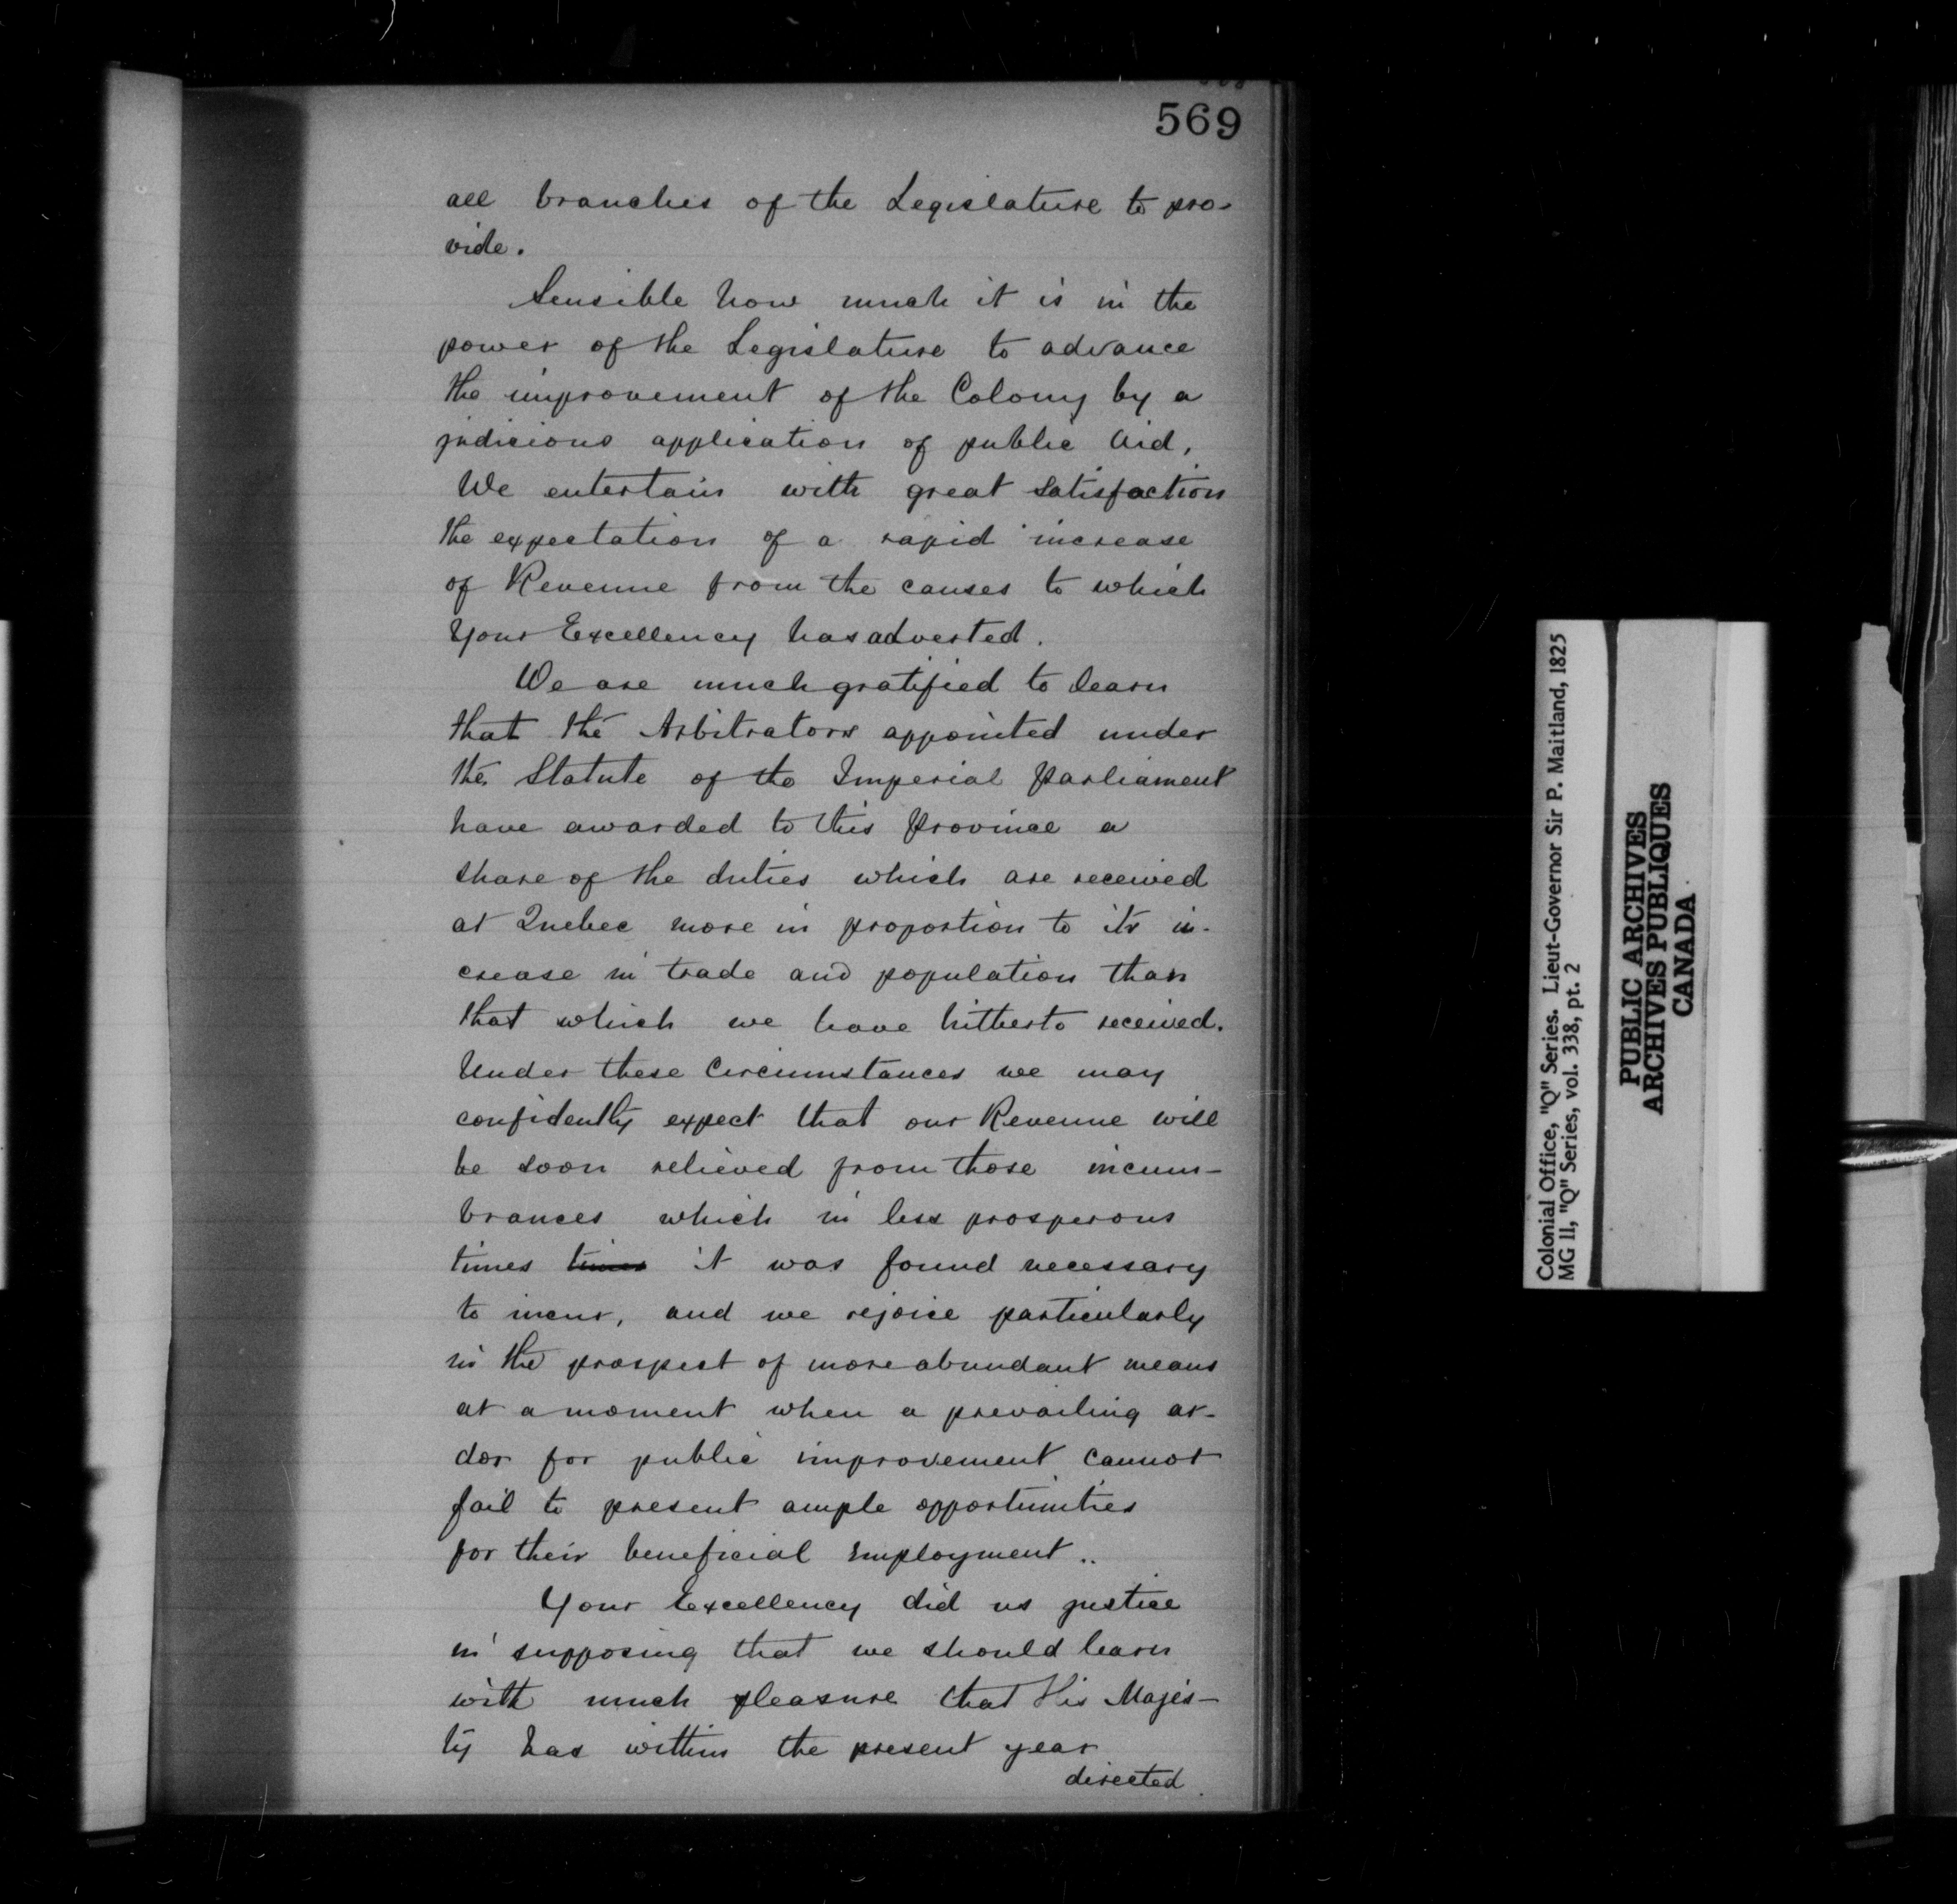 569
all branches of the Legislature to pro-
vide.
Sensible how much it is in the
power of the Legislature to advance
the improvement of the Colony by a
judicious application of public Aid,
We entertain with great satisfaction
the expectation of a rapid increase
of Revenue from the causes to which
Your Excellency has adverted.
We are much gratified to learn
that the Arbitrators appointed under
the Statute of the Imperial Parliament
have awarded to this Province a
share of the duties which are received
at Quebec more in proportion to its in-
crease in trade and population than
that which we have hitherto received.
Under these Circumstances we may
confidently expect that our Revenue will
be soon relieved from those incum-
brances which in less prosperous
times times it was found necessary
to incur, and we rejoice particularly
in the prospect of more abundant means
at a moment when a prevailing ar-
dor for public improvement cannot
fail to present ample opportunities
for their beneficial employment..
Your Excellency did us justice
in supposing that we should learn
with much pleasure that His Majes-
ty has within the present year
directed
Colonial Office, "Q" Series. Lieut-Governor Sir P. Maitland, 1825
MG 11, "Q" Series, vol. 338, pt. 2
PUBLIC ARCHIVES
ARCHIVES PUBLIQUES
CANADA